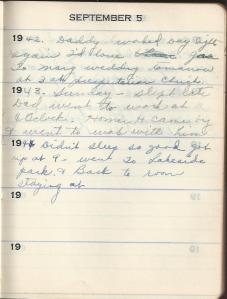 SEPTEMBER 5
1942. Daddy worked day shift
again I'd love
to mary wedding tomorrow
at 2
1943. Sunday - slept late
Dad went to work at 2
O'Clock. Homer H. came by
& went to wab with him
1944 Didn't sleep so good got
up at 9 - went to Lakeside
park. & Back to room
staying at
19
19